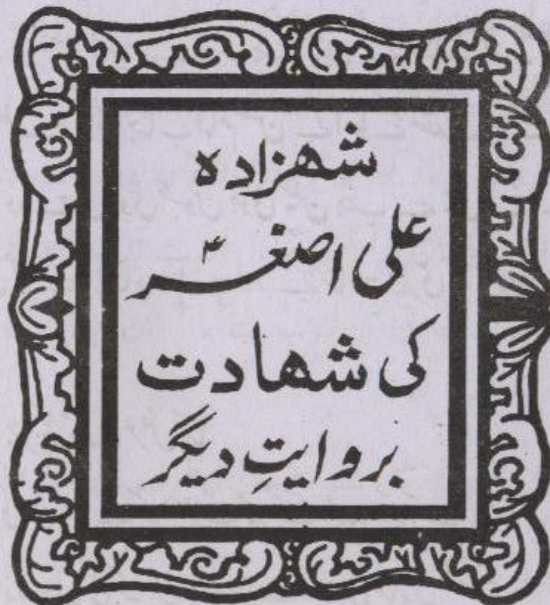 شهزاده
علی اصغرؑ
کی شهادت
بروایتِ دیگر